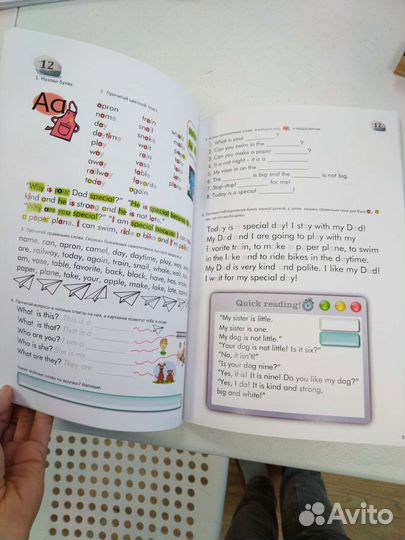 12
1. Назови букву.
2. Прочитай цветной текст.
Aa
apron
name
day
daytime
play
way
away
railway
today
train
snail
snake
wait
rain
vase
table
favorite
again
"Why is your Dad special?" "He is special because he is
kind and he is strong and he is not late."
"Why are you special?" "I am special because I
a paper plane. I can swim, ride a bike and I'm
name, can, apron, camel, day, daytime, play,
are, railway, today, again, train, snail, whale, wait,
am, vase, table, favorite, back, black, have, has,
paper, plane, take, your, apple, make, lake, late,
4. Прочитай вопросы и
What is this? This is a
What is that? That is a
Who are you? I am a
Who is she? She is my
What are they? They are
Какие зелёные слова ты выучил? Напиши:
12
1. What is your ?
2. Can you swim in the ?
3. Can you make a paper ?
4. It is not night - it is a
5. My vase in on the
6. The is big and the is not big.
7. Stop-stop! for me!
8. Today is a special !
Tod y is a special d y! I st y with my D d!
My D d and I are going to pl y with my
f vorite tr in, to m ke a p per pl ne, to swim
in the l ke and to ride bikes in the d ytime.
My D d is very kind and polite. I like my D d!
I w it for my special d y!
Quick reading!
"My sister is little.
My sister is one.
My dog is not little."
"Your dog is not little! Is it six?"
"No, it isn't!"
"Is your dog nine?"
"Yes, it is! It is nine! Do you like my dog?"
"Yes, I do! It is kind and strong,
big and white!"
Avito